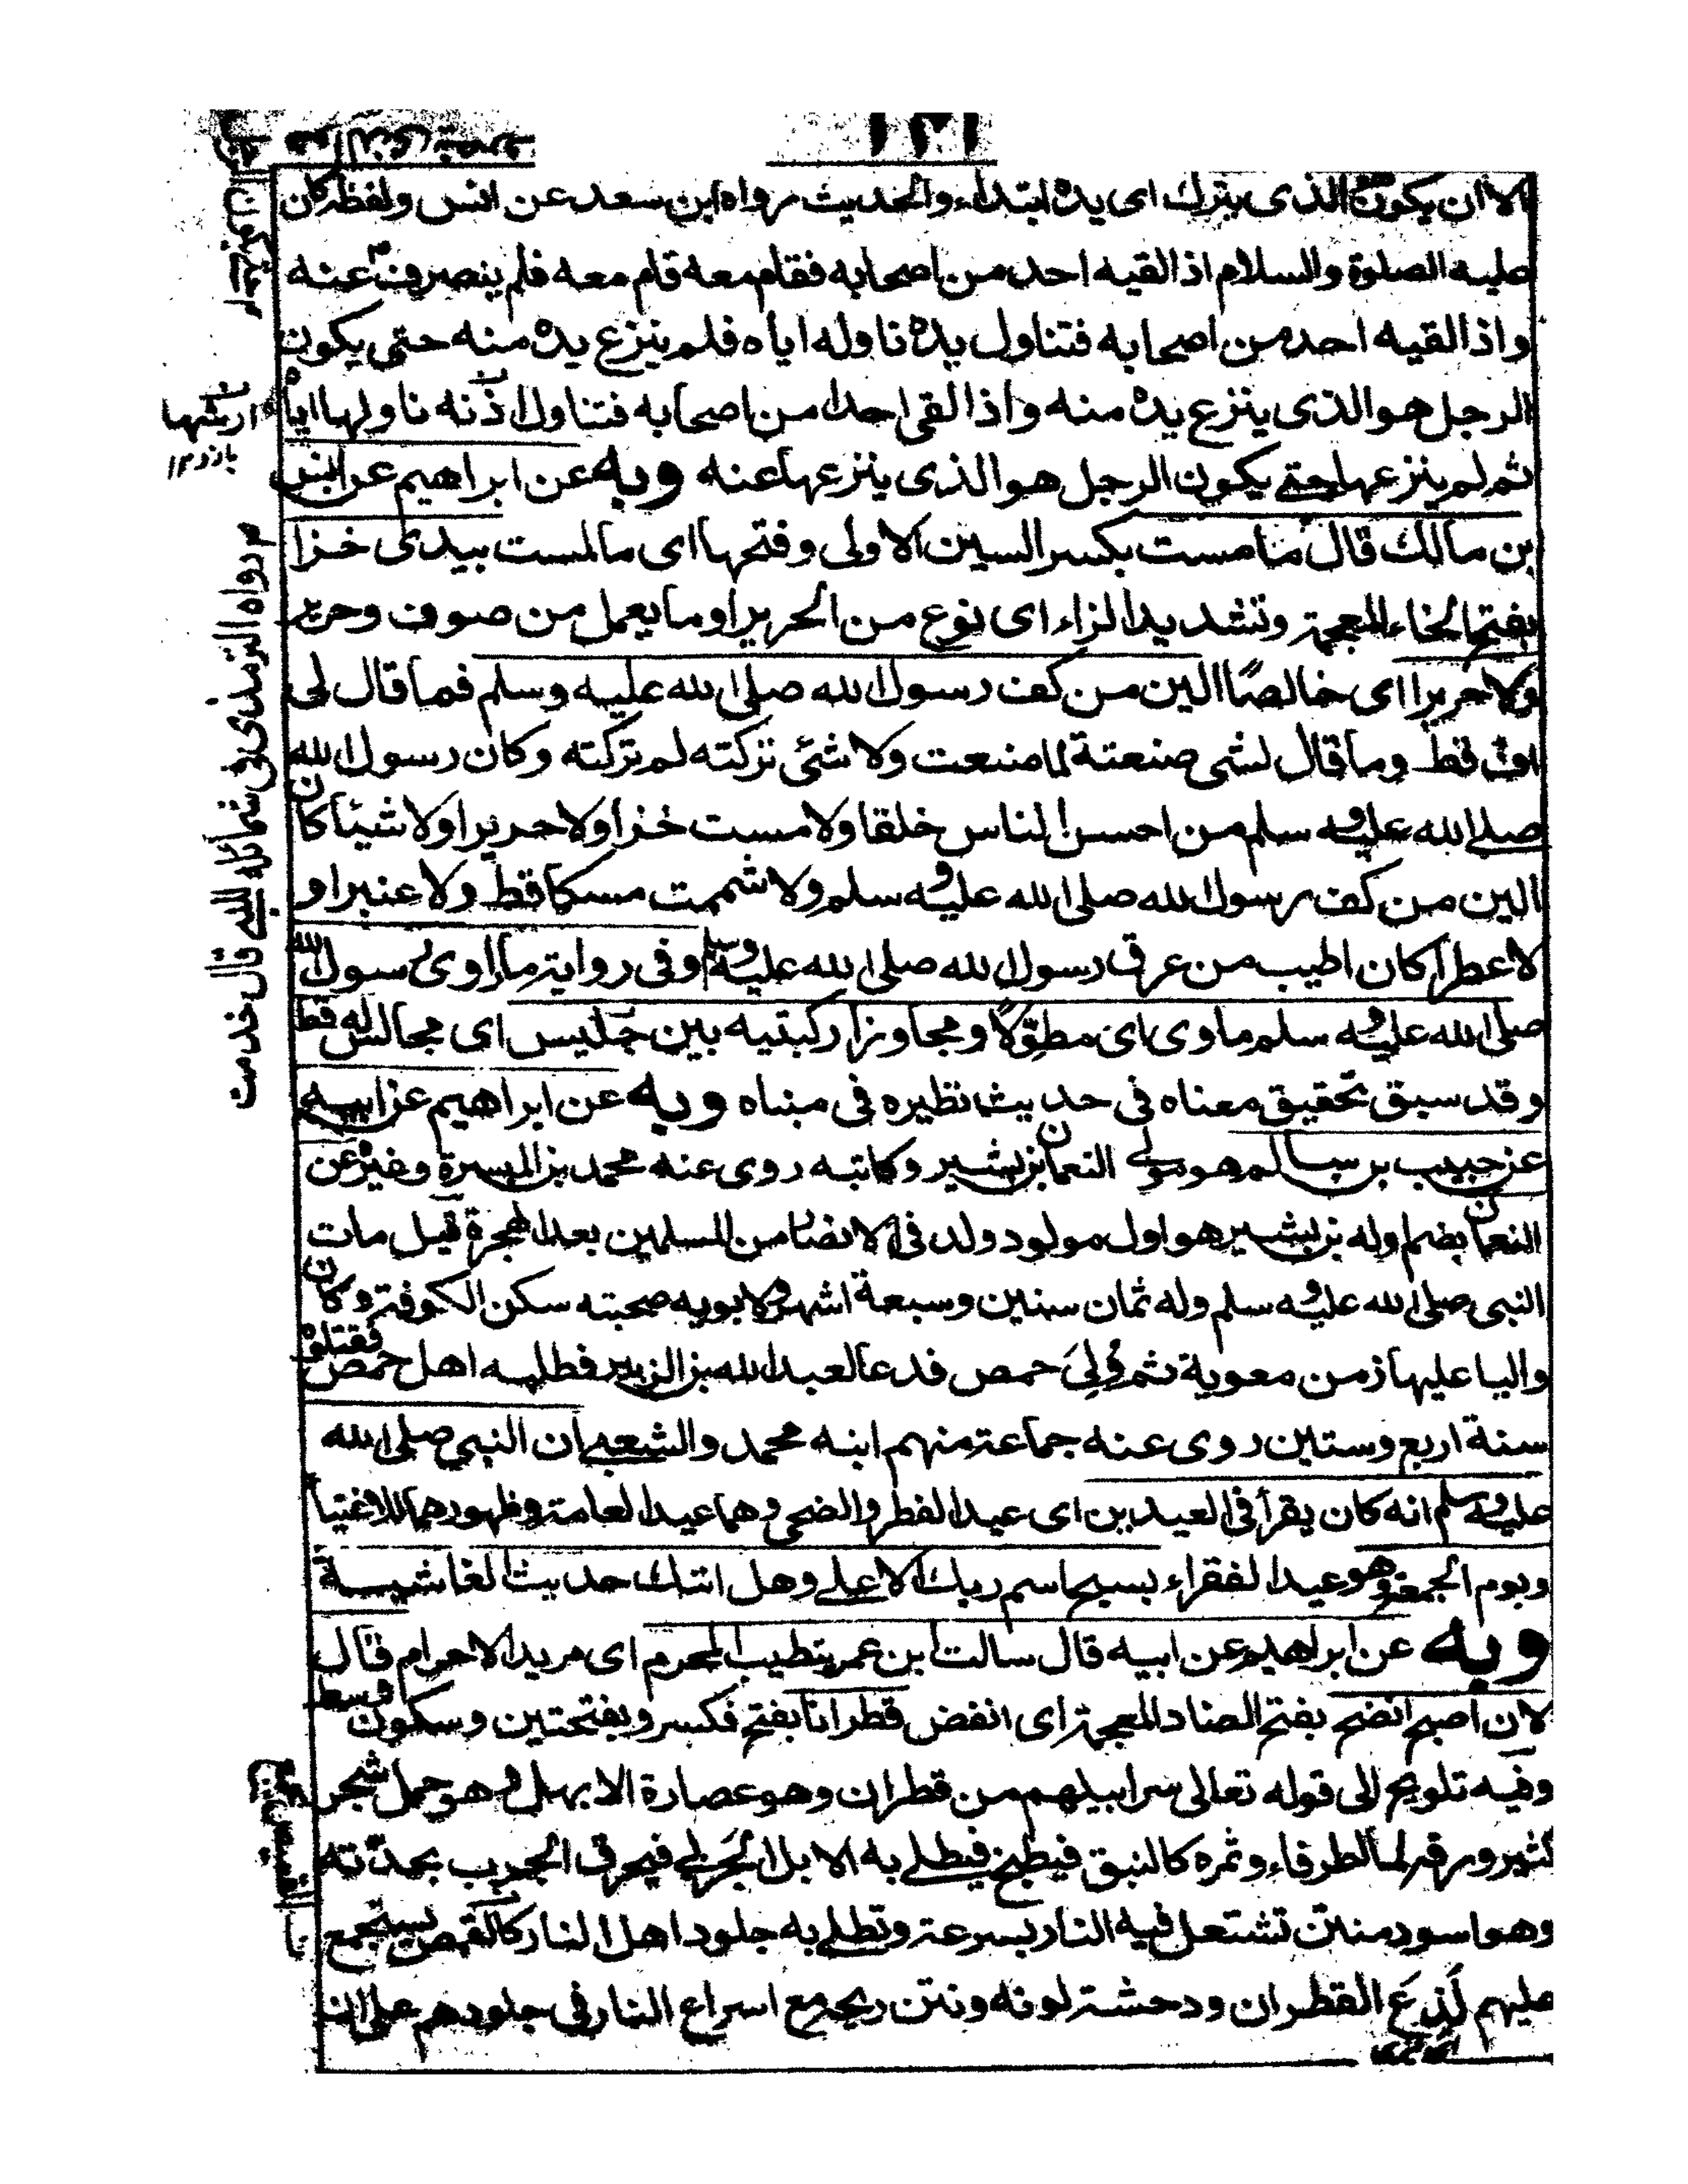 ١٢١
الا ان يكون الذى يترك اى يده ابتداء والحديث رواه ابن سعد عن انس ولفظه كان
عليه الصلوة والسلام اذ القيه احد من اصحابه فقام معه قام معه فلم ينصرف عنه
واذ القيه احد من اصحابه فتناول يده ناوله اياه فلم ينزع يده منه حتى يكون
الرجل هو الذى ينزع يده منه واذ القى احدا من اصحابه فتناول اذنه ناولها اياه
ثم لم ينزعها حتى يكون الرجل هو الذى ينزعها عنه وبه عن ابراهيم عن انس
بن مالك قال ما مست بكسر السين الاولى وفتحها اى ما لمست بيدى خزا
بفتح الخاء المعجمة وتشديد الزاء اى نوع من الحرير او ما يعمل من صوف وحرير
ولا حريرا اى خالصًا الين من كف رسول الله صلى الله عليه وسلم فما قال لى
اف قط وما قال لشى صنعته لما صنعت ولا شئ تركته لم تركته وكان رسول الله
صلى الله عليه وسلم من احسن الناس خلقا ولا مست خزا ولا حريرا ولا شيئا كان
الين من كف رسول الله صلى الله عليه وسلم ولا شممت مسكا قط ولا عنبرا و
لا عطرا كان اطيب من عرق رسول الله صلى الله عليه وسلم وفى رواية ما راوى رسول الله
صلى الله عليه وسلم ماوى اى مطوّلًا ومجاوزا ركبتيه بين جليس اى مجالس له قط
وقد سبق تحقيق معناه فى حديث نظيره فى مبناه وبه عن ابراهيم عن ابيه
عن حبيب بن سالم هو مولى النعمان بن بشير وكاتبه روى عنه محمد بن المسرة وغيره عن
النعمان بضم اوله بن بشير هو اول مولود ولد فى الانصار من المسلمين بعد الهجرة قيل مات
النبى صلى الله عليه وسلم وله ثمان سنين وسبعة اشهر ولا بويه صحبته سكن الكوفة وكان
واليا عليها زمن معوية ثم وُلِىَ حمص فدعا لعبد الله بن الزبير فطلبه اهل حمص فقتلوه
سنة اربع وستين روى عنه جماعة منهم ابنه محمد والشعبى ان النبى صلى الله
عليه وسلم انه كان يقرأ فى العيدين اى عيد الفطر والضحى وهما عيد العامة وظهورهما للاغنياء
ويوم الجمعة وهو عيد الفقراء بسبح اسم ربك الاعلى وهل اتىك حديث الغاشيسة
وبه عن ابراهيم عن ابيه قال سالت ابن عمر يتطيب المحرم اى مريد الاحرام قال
لان اصبح انضح بفتح الضاد المعجمة اى انفض قطرانا بفتح فكسر وبفتحتين وسكون وسط
وفيه تلويح الى قوله تعالى سرابيلهم من قطران وهو عصارة الابهل وهو حمل شجر
كثير ورقه لما الطرفاء وثمره كالنبق فيطبخ فيطلى به الابل الجربى فيحرق الجرب بحدّته
وهو اسود منتن تشتعل فيه النار بسرعة وتطلى به جلود اهل النار كالقمص يستجمع
عليهم لَذع القطران ودحشة لونه ونتن ريحه مع اسراع النار فى جلودهم على ان
م رواه الترمذى فى شمائله قال خدمت